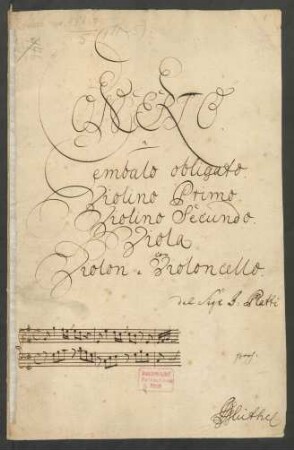 CONCERTO
à
Cembalo obligato
Violino Primo
Violino Secundo
Viola
Violon e Violoncello.
del Sigr G. Platti
poss.